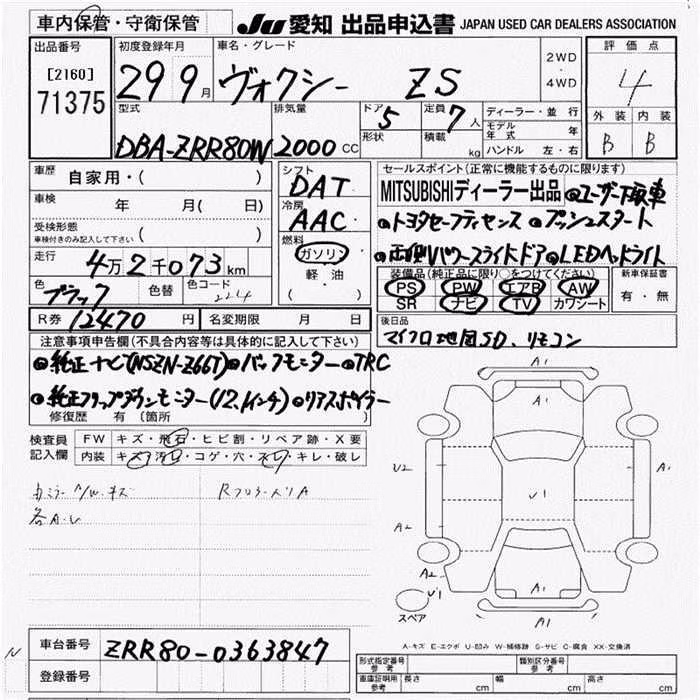 車内保管・守衛保管
JU 愛知 出品申込書 JAPAN USED CAR DEALERS ASSOCIATION
出品番号 初度登録年月 車名・グレード 2WD・4WD 評価点
[2160]
71375
29 9月 ヴォクシー ZS 4
型式 排気量 ドア 5 定員 7人 ディーラー・並行 外装 内装
DBA-ZRR80W 2000 CC 形状 積載 kg モデル年式 年 B B
ハンドル 左・右
車歴 自家用・( )
シフト DAT
セールスポイント(正常に機能するものに限ります)
MITSUBISHIディーラー出品 ●ユーザー下取車
車検 年 月( 日)
冷房 AAC
●トヨタセーフティセンス ●プッシュスタート
受検形態
車検付きのみ記入して下さい ( )
燃料 ガソリン
●両側パワースライドドア ●LEDヘッドライト
走行 4万2千073km
軽油
( )
装備品(純正品に限り○をつけてください) 新車保証書
PS PW エアB AW 有・無
SR ナビ TV カワシート
色 ブラック 色替 色コード 224
R券 12470円 名変期限 月 日
後日品
マイクロ地図SD、リモコン
注意事項申告欄(不具合内容等は具体的に記入して下さい)
●純正ナビ(NSZN-Z66T)●バックモニター ●TRC
●純正フリップダウンモニター(12.1インチ)●リアスポイラー
修復歴 有( 箇所 )
検査員記入欄 FW キズ・飛石・ヒビ割・リペア跡・X要
内装 キズ・汚れ・コゲ・穴・スレ・キレ・破レ
各A.U
A1
A1
U2 U1 A1
A2
A2 U1 A1
A1
スペア
A-キズ E-エクボ U-凹み W-補修跡 S-サビ C-腐食 XX-交換済
車台番号 ZRR80-0363847
登録番号
形式指定番号 参考 類別区分番号 参考
車庫証明用 参考 長さ cm 幅 cm 高さ cm